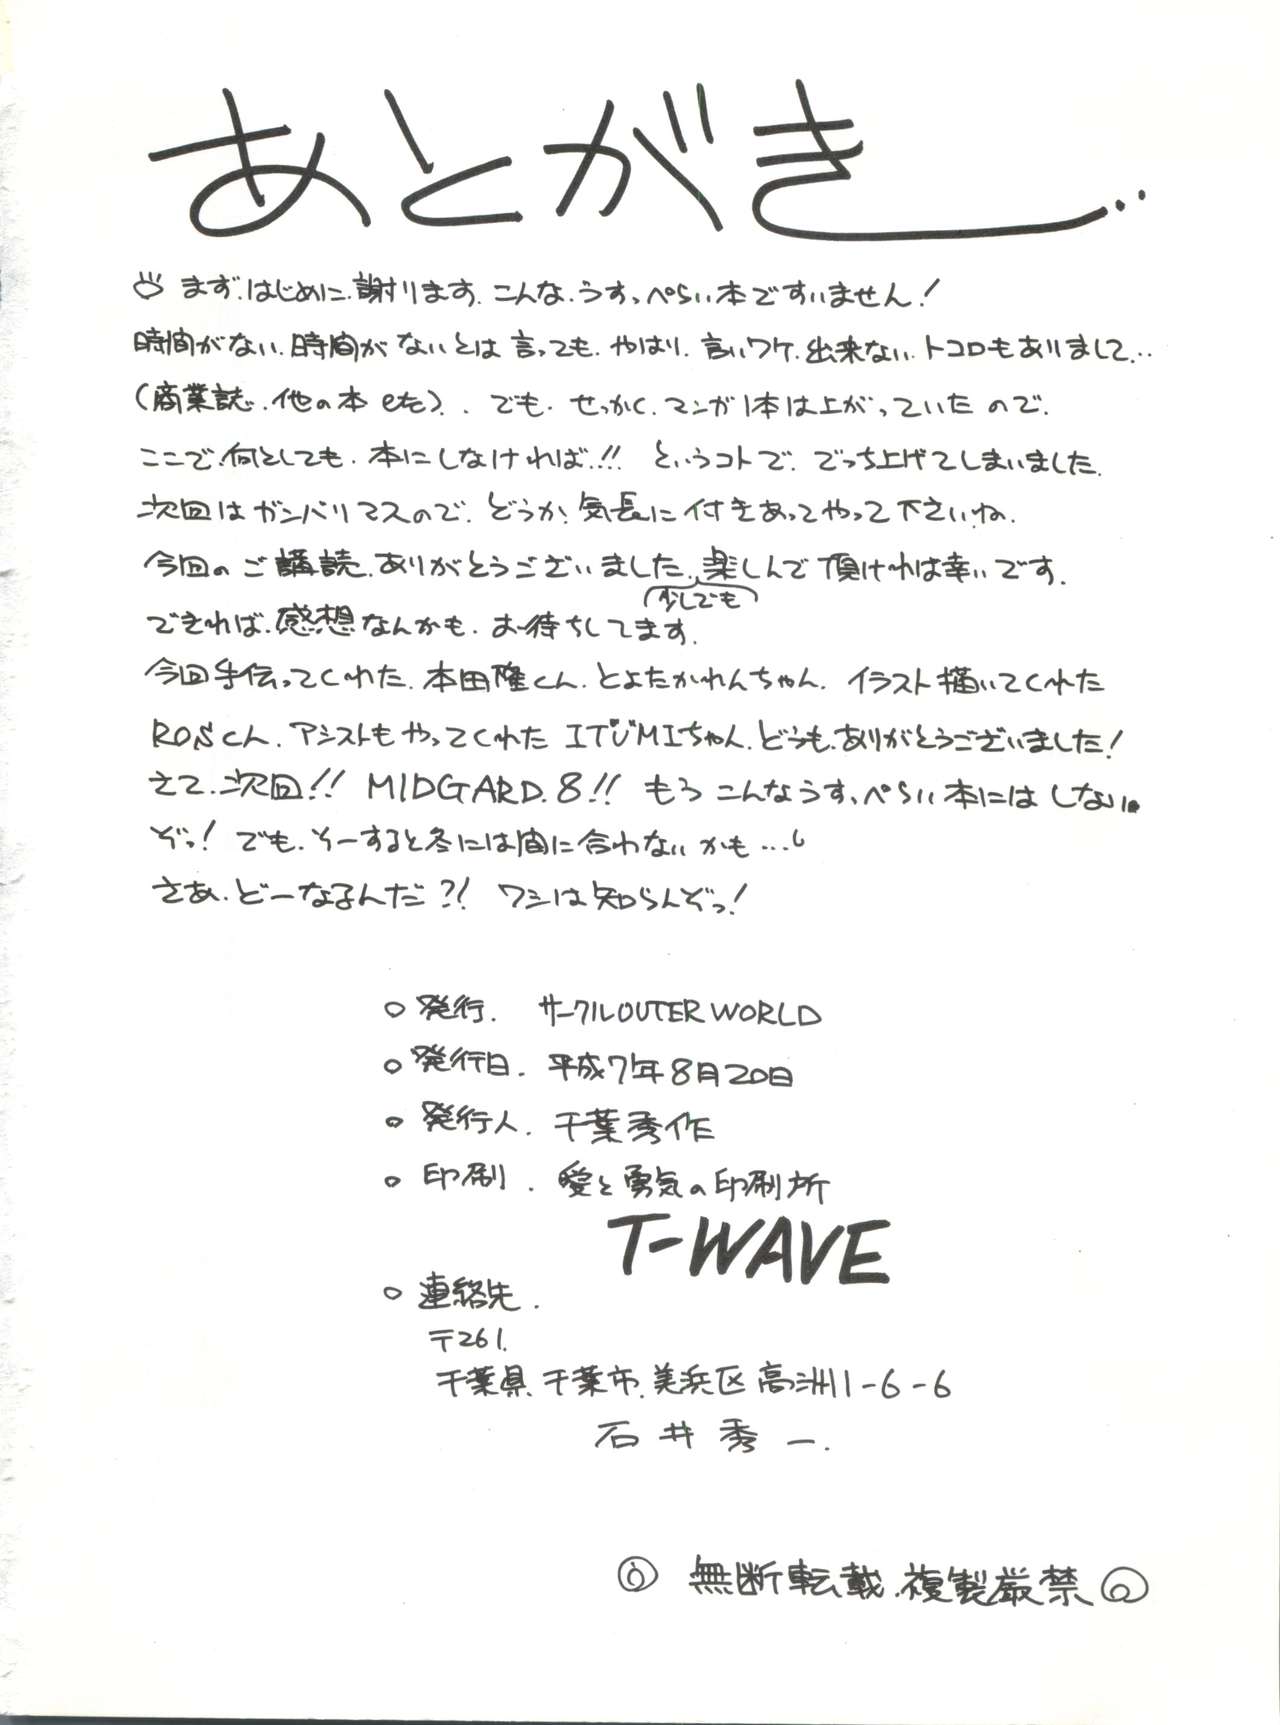 あとがき...
まず.はじめに.謝ります.こんな.うすっぺらい本ですいません!
時間がない.時間がないとは言っても.やはり.言いワケ.出来ない.トコロもありまして...
(商業誌.他の本etc)..でも.せっかく.マンガ1本は上がっていたので.
ここで.何としても.本にしなければ..!! というコトで.でっち上げてしまいました.
次回はガンバリマスので.どうか.気長に付きあってやって下さいね.
今回のご購読.ありがとうございました.楽しんで頂ければ幸いです.
(少しでも)
できれば.感想なんかも.お待ちしてます.
今回手伝ってくれた.本田隆くん.とよたかれんちゃん.イラスト描いてくれた
ROSくん.アシストもやってくれたITUMIちゃん.どうも.ありがとうございました!
さて.次回!! MIDGARD.8!! もうこんなうすっぺらい本にはしない.
ぞっ! でも.そーすると冬には間に合わないかも...。
さあ.どーなるんだ?! ワシは知らんぞっ!
○ 発行. サークルOUTER WORLD
○ 発行日. 平成7年8月20日
○ 発行人. 千葉秀作
○ 印刷. 愛と勇気の印刷所
T-WAVE
○ 連絡先.
〒261.
千葉県.千葉市.美浜区高洲1-6-6
石井秀一.
無断転載.複製厳禁